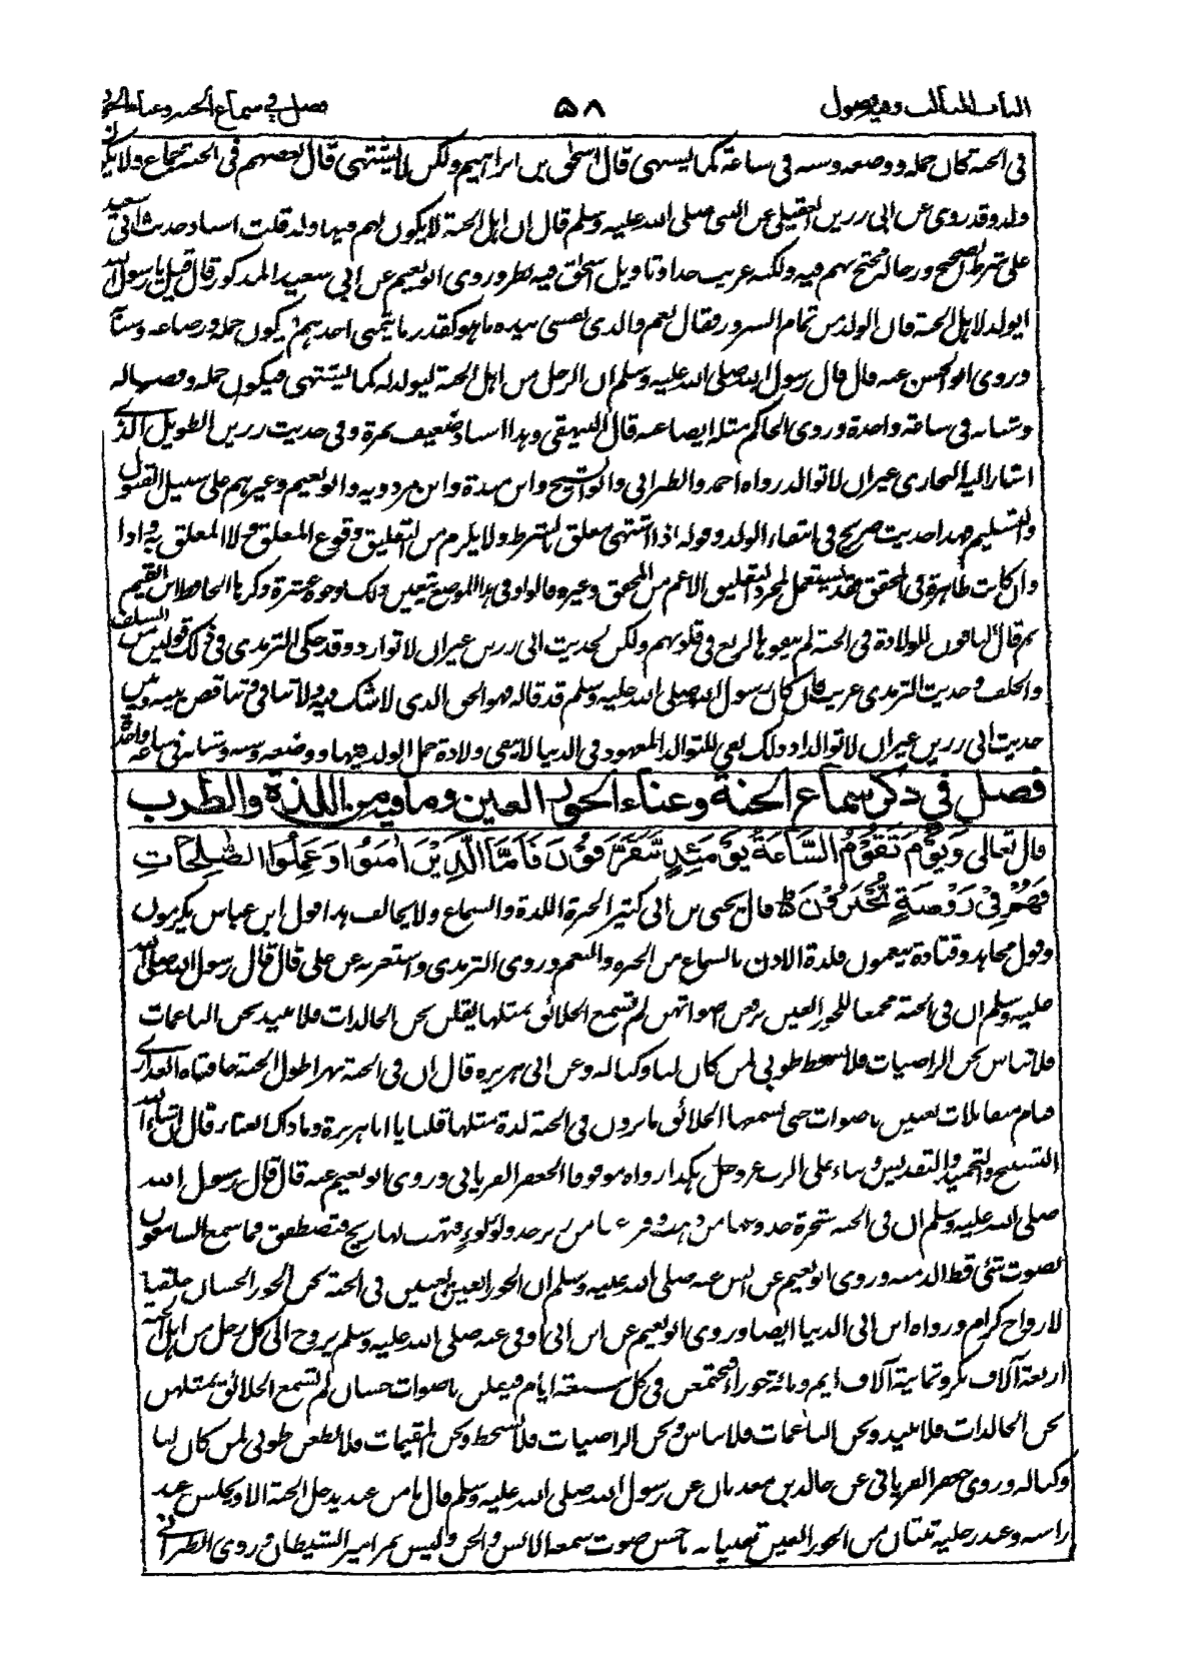 الباب الثالث وفيه فصول ۵۸ فصل في سماع الجنة وغناء الحور
في الجنة كان حمله ووضعه وسنه في ساعة كما يشتهي قال اسحق بن ابراهيم ولكن لا يشتهي قال بعضهم في الجنة جماع ولا يكون
ولد وقد روي عن ابي رزين العقيلي عن النبي صلى الله عليه وسلم قال ان اهل الجنة لا يكون لهم فيها ولد قلت اسناد حديث ابي سعيد
على شرط الصحيح ورجاله محتج بهم فيه ولكنه غريب جدا وتاويل اسحاق فيه نظر وروى ابو نعيم عن ابي سعيد المذكور قال قيل يا رسول الله
ايولد لاهل الجنة فان الولد من تمام السرور فقال نعم والذي نفسي بيده ما هو كقدر ما يتمنى احدهم يكون حمله ورضاعه وشبابه
وروى ابو الحسن عنه قال قال رسول الله صلى الله عليه وسلم ان الرجل من اهل الجنة ليولد له كما يشتهي فيكون حمله وفصاله
وشبابه في ساعة واحدة وروى الحاكم مثله ايضا عنه قال البيهقي وهذا اسناد ضعيف بمرة وفي حديث رزين الطويل الذي
اشار اليه البخاري غير ان لا توالد رواه احمد والطبراني وابو الشيخ وابن مندة وابن مردويه وابو نعيم وغيرهم على سبيل القبول
والتسليم فهذا حديث صريح في انتفاء الولد وقوله اذا اشتهى معلق بالشرط ولا يلزم من التعليق وقوع المعلق ولا المعلق به واذا
وان كانت ظاهرة في المحقق فقد يستعمل لمجرد التعليق الاعم من المحقق وغيره قالوا وفي هذا الموضع يتعين ذلك لوجوه عشرة ذكرها الحافظ ابن القيم
ثم قال النافون للولادة في الجنة لم ينفوها لزيغ في قلوبهم ولكن لحديث ابي رزين غير ان لا توالد وقد حكى الترمذي في ذلك قولين من السلف
والخلف وحديث الترمذي غريب فان كان رسول الله صلى الله عليه وسلم قد قاله فهو الحق الذي لا شك فيه ولا تنافي وتناقض بينه وبين
حديث ابي رزين غير ان لا توالد اذ ذلك نفي للتوالد المعهود في الدنيا لا نفي ولادة حمل الولد فيها ووضعه وسنه وشبابه في ساعة واحدة
فصل في ذكر سماع الجنة وغناء الحور العين وما فيه من اللذة والطرب
قال تعالى وَيَوْمَ تَقُوْمُ السَّاعَةُ يَوْمَئِذٍ يَّتَفَرَّقُوْنَ فَاَمَّا الَّذِيْنَ اٰمَنُوْا وَعَمِلُوا الصّٰلِحٰتِ
فَهُمْ فِيْ رَوْضَةٍ يُّحْبَرُوْنَ قال يحيى بن ابي كثير الحبرة اللذة والسماع ولا يخالف هذا قول ابن عباس يكرمون
وقول مجاهد وقتادة ينعمون فلذة الاذن بالسماع من الحبرة والنعيم وروى الترمذي واستغربه عن علي قال قال رسول الله صلى الله
عليه وسلم ان في الجنة مجتمعا للحور العين يرفعن اصواتهن لم تسمع الخلائق بمثلها يقلن نحن الخالدات فلا نبيد نحن الناعمات
فلا نبأس نحن الراضيات فلا نسخط طوبى لمن كان لنا وكنا له وعن ابي هريرة قال ان في الجنة نهرا طول الجنة حافتاه العذارى
قيام متقابلات يغنين باصوات حتى يسمعها الخلائق ما يرون في الجنة لذة مثلها قلنا يا ابا هريرة وما ذاك الغناء قال ان شاء الله
التسبيح والتحميد والتقديس وثناء على الرب عز وجل هكذا رواه موقوفا الجعفر الفريابي وروى ابو نعيم عنه قال قال رسول الله
صلى الله عليه وسلم ان في الجنة شجرة جذوعها من ذهب وفروعها من زبرجد ولؤلؤ فتهب لها ريح فتصطفق فما سمع السامعون
بصوت شئ قط الذ منه وروى ابو نعيم عن انس عنه صلى الله عليه وسلم ان الحور العين يغنين في الجنة نحن الحور الحسان خلقنا
لازواج كرام ورواه ابن ابي الدنيا ايضا وروى ابو نعيم عن ابن ابي اوفى عنه صلى الله عليه وسلم يزوج الى كل رجل من اهل الجنة
اربعة آلاف بكر وثمانية آلاف ايم ومائة حوراء فيجتمعن في كل سبعة ايام فيقلن باصوات حسان لم تسمع الخلائق بمثلهن
نحن الخالدات فلا نبيد ونحن الناعمات فلا نبأس ونحن الراضيات فلا نسخط ونحن المقيمات فلا نظعن طوبى لمن كان لنا
وكنا له وروى جعفر الفريابي عن خالد بن معدان عن رسول الله صلى الله عليه وسلم قال ما من عبد يدخل الجنة الا ويجلس عند
راسه وعند رجليه ثنتان من الحور العين تغنيانه باحسن صوت سمعه الانس والجن وليس بمزامير الشيطان وروى الطبراني